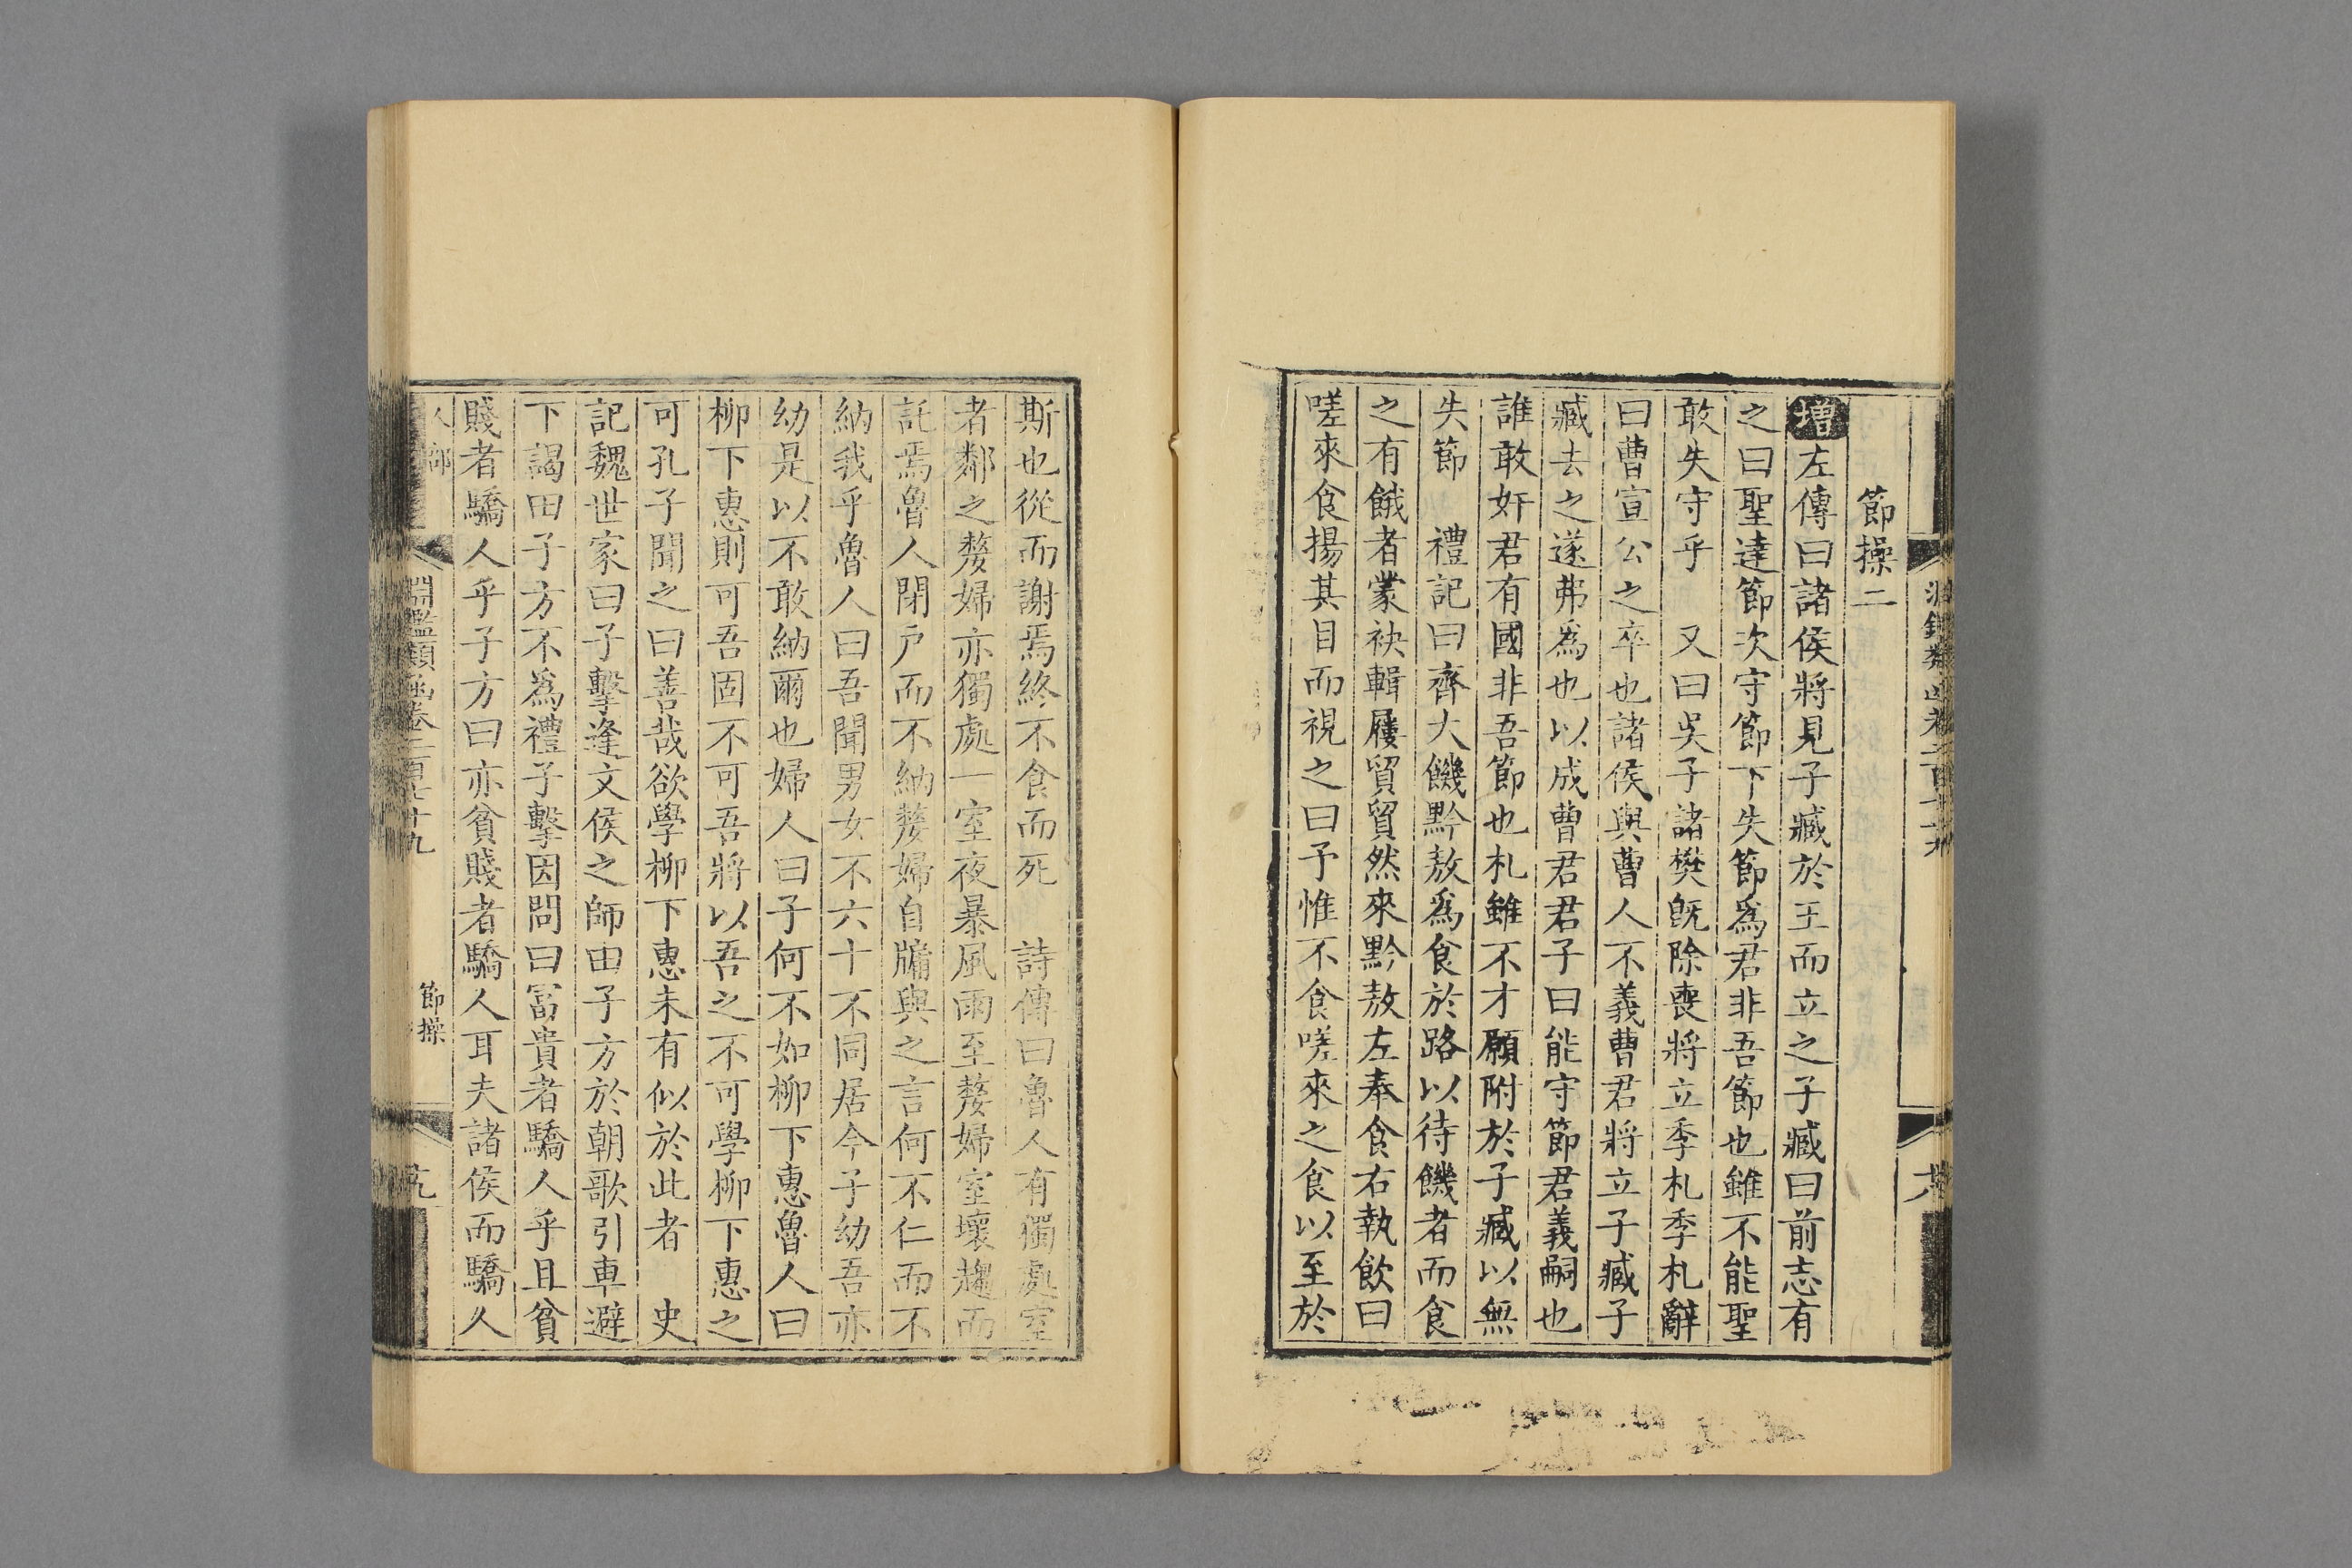 節操二
增左傳曰諸侯將見子臧於王而立之子臧曰前志有
之曰聖達節次守節下失節爲君非吾節也雖不能聖
敢失守乎　又曰吳子諸樊既除喪將立季札季札辭
曰曹宣公之卒也諸侯與曹人不義曹君將立子臧子
臧去之遂弗爲也以成曹君君子曰能守節君義嗣也
誰敢奸君有國非吾節也札雖不才願附於子臧以無
失節　禮記曰齊大饑黔敖爲食於路以待饑者而食
之有餓者蒙袂輯屨貿貿然來黔敖左奉食右執飲曰
嗟來食揚其目而視之曰予惟不食嗟來之食以至於
斯也從而謝焉終不食而死　詩傳曰魯人有獨處室
者鄰之嫠婦亦獨處一室夜暴風雨至嫠婦室壞趨而
託焉魯人閉戶而不納嫠婦自牖與之言何不仁而不
納我乎魯人曰吾聞男女不六十不同居今子幼吾亦
幼是以不敢納爾也婦人曰子何不如柳下惠魯人曰
柳下惠則可吾固不可吾將以吾之不可學柳下惠之
可孔子聞之曰善哉欲學柳下惠未有似於此者　史
記魏世家曰子擊逢文侯之師田子方於朝歌引車避
下謁田子方不爲禮子擊因問曰富貴者驕人乎且貧
賤者驕人乎子方曰亦貧賤者驕人耳夫諸侯而驕人
淵鑑類函卷二百七十九
節操